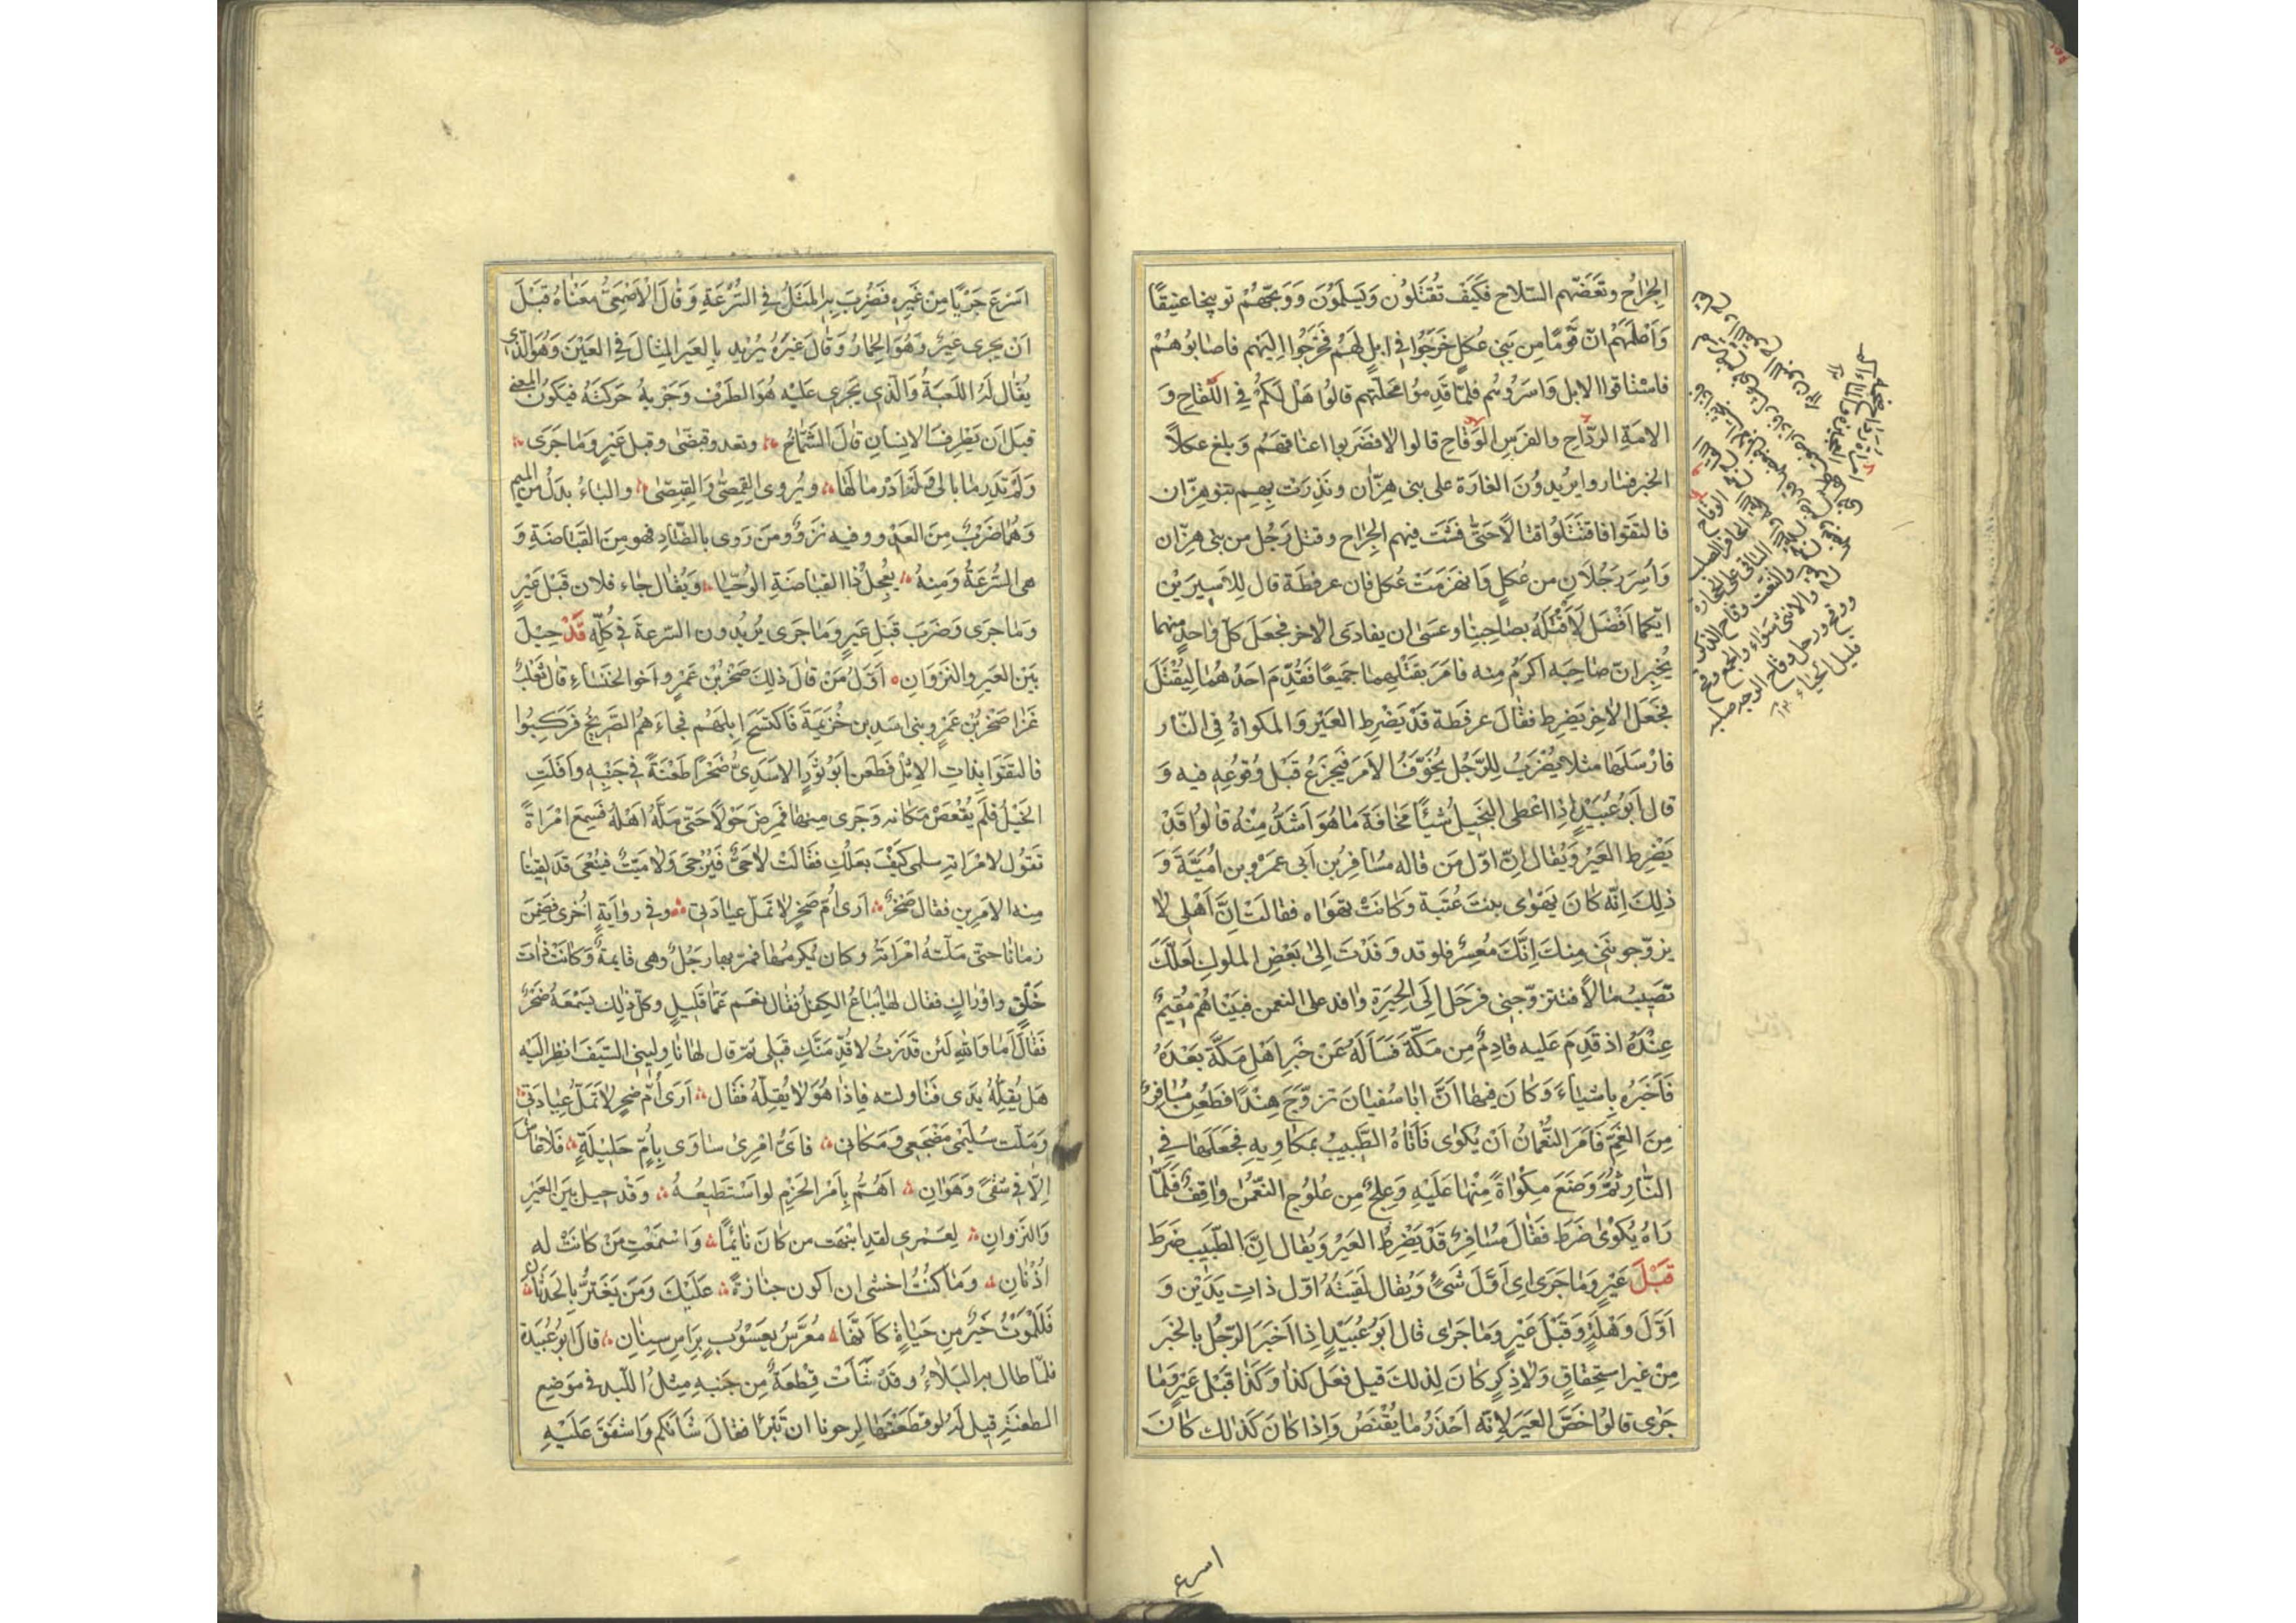 الجِرَاحُ وتَعَضّهم السّلاح فكَيفَ تُقتَلوُن وَيَسلَمُونَ وَوَبَّخَهُمْ توبيخا عنيفًا
وَاَعْلَمَهُمْ انّ قَوْمًا مِن بَنِي عُكلٍ خَرَجُوا فِي ابلٍ لَهُم فَخَرَجُوا اِليهم فاصَابوُهُمْ
فاستَاقوا الابل وَاسَروُهُم فلمّا قَدِموُا مَحَلّتهم قالوُا هَلْ لَكُمْ فِي اللِّقاحِ وَ
الامَةِ الرَّدَاحِ والفرَسِ الوَقَاحِ قالوا لا فضَرَبوا اعناقَهُم وَبلغ عكلاً
الخبر فسَاروا يُريدُونَ الغَارَة على بنى هِزّان ونَذِرَتْ بِهِم بَنو هِزّان
فالتَقَوا فاقتَتَلوُا قتالاً حَتّى فَشَتْ فيهم الجِرَاح وقتلَ رَجُل من بنى هِزّان
وَاُسِرَ رَجُلانِ من عُكلٍ وَانهَزَمَتْ عُكل فان عرفطَة قال لِلاَسِيرَيْن
ايّكما اَفْضَل لِأَقْتُلَهُ بصَاحِبِنا وعَسَى ان يفادَى الآخر فجَعَلَ كلّ واحدٍ منهما
يُخبِر انّ صَاحِبَه اكرَمُ مِنه فامَرَ بقَتْلِهِما جَميعًا فقُدِّمَ اَحَدُهُمَا لِيُقْتَلَ
فجَعَلَ الآخر يَضرِط فقال عرفطَة قَدْ يَضْرِط العَيْر وَالمكواةُ فِي النّار
فارْسَلَهَا مثلا يُضْرَبُ لِلرَّجُل يُخَوَّفُ الاَمرَ فيَجزَعُ قَبْلَ وُقوُعِه فيه وَ
قال اَبوُ عُبَيْدٍ اِذا اعْطى البَخيلُ شيْئًا مَخافَةَ مَا هُوَ اَشَدُّ مِنْهُ قالوُا قَدْ
يَضْرِط العَيْر وَيُقال اِنّ اوّل مَن قاله مُسَافِرُ بن اَبى عمْرو بن اُميَّةَ وَ
ذلِكَ اِنّه كَانَ يَهْوٰى بنتَ عُتبَة وَكانَتْ تهوَاه فقالَتْ اِنَّ اَهْلى لا
يزوّجونَنى مِنكَ اِنَّكَ مُعسِرٌ فلو قد وَفَدْتَ اِلىٰ بَعْضِ الملوك لَعَلَّكَ
تصيبُ مالاً فتتزوّجنى فرَحَلَ اِلَى الحِيرَةِ وافدعلى النعمن فبَيْنَاهُمَ مُقيمٌ
عِنْدَهُ اذ قَدِمَ عَليه قادِمٌ مِن مَكّةَ فَسَاَلَهُ عَنْ خَبَرِ اهْلِ مَكَّةَ بَعْدَهُ
فَاَخبَرَه باشيَاءَ وَكَانَ فيها انَّ ابا سُفيان تزوّجَ هِنْدًا فطُعِنَ مُسَافِرٌ
مِنَ الغَمِّ فَاَمَرَ النُّعمانُ اَنْ يُكوٰى فَاَتاهُ الطَّبيبُ بمَكاوِيهِ فجَعَلَهَا فِي
النّارِ ثمَّ وَضَعَ مِكْوَاةً مِنْهَا عَلَيْهِ وَعِلجٌ مِن عُلوُجِ النّعْمٰن وَاقِفٌ فَلَمّا
رَاهُ يُكْوٰى ضَرَط فقالَ مُسَافِرٌ قَدْ يَضْرِطُ العَيْر وَيُقال اِنّ الطّبيب ضَرَط
قَبْلَ عَيْرٍ وَمَا جَرَى اى اَوّلَ شَىْءٍ وَيُقال لَقيتُهُ اوّل ذاتِ يَدَيْن وَ
اَوّلَ وَهْلَةٍ وَقَبْلَ عَيْرٍ وَمَا جَرٰى قال ابَوُ عُبَيْدٍ اِذا اخبَرَ الرّجُل بالخَبَر
مِنْ غيرِ استِحقاقٍ وَلا ذِكرٍ كانَ لِذلكَ قيل فعَل كذا وَكَذا قَبْل عَيْرٍ وَمَا
جَرٰى قالوُا خَصَّ العَيَرَ لاِنّه اَحْذَرُ مَا يُقْنَصُ وَاِذا كانَ كَذلك كانَ
الوقاح
الحافر الصلب
والنعت وقاح الذكر
والانثى سواء والجمع وقح
ورجل وقاح الوجه صلبه
قليل الحياء
اسرع
اسْرَعَ جَرْيًا مِنْ غَيرِهِ فضُرِبَ بِهِ المَثَلُ فِي السُّرْعَةِ وَقالَ الاَصْمَعِىُّ مَعْنَاهُ قَبْلَ
ان يجرى عَيرٌ وَهُوَ الحِمَارُ وَقالَ غيَرهُ يُرِيد بِالعَير المِثالَ فِي العَيْنَ وَهُوَ الّذى
يُقال لَهُ اللعبَةُ وَالّذِى يَجرِى عَليْه هُوَ الطَرْف وَجَريهُ حَرَكتُهُ فيَكوُنُ المعنى
قبَلَ ان يَطرِفَ الاِنسَان قال الشَمّاخُ وتعدو قِبِصّى وقبل عَيرٍ وَمَا جَرَى
وَلَمْ تَدْرِ مَا بالى وَلَم اَدْرِ مَالَها ويُروى القِمِصّى وَالقِبِصّى والبَاءُ بدَل مِن الميم
وَهُمَا ضَرْبٌ مِنَ العَدْوِ وفيه نَزوٌ وَمَنَ رَوى بالضّاد فهو مِنَ القَبَاضَةِ وَ
هى السُّرعَةُ وَمِنهُ يُعْجِلُ ذا القبَاضَةِ الوُحِيّا وَيُقال جَاء فلان قَبْلَ عَيْرٍ
وَمَا جرَى وَضَرَبَ قَبْلَ عَيرٍ وَمَا جَرى يُريدُون السّرعةَ فِى كُلّهِ قَدْ حِيْلَ
بَيْنَ العَيرِ والنّزَوَانِ اَوّلُ مَنْ قالَ ذلِكَ صَخْرُ بْن عَمْرٍو اَخوُ الخنسَاءِ قال ثَعْلَبٌ
غَزَا صَخْرُ بْن عَمْرٍو بنى اسَدِ بن خُزَيمَةَ فَاكتَسَحَ اِبلهُم فجَاءَهُمُ الصَّريخُ فركِبُوا
فالتَقَوا بذاتِ الاِثْل فطَعَن ابَوُ ثوْرٍ الاسَدِىُّ صَخْرًا طَعْنَةً فِى جَنْبِهِ وَاَفْلَتِ
الخَيلُ فلَم يُقْعَصْ مَكانه وَجَرى مِنها فمَرِضَ حَوْلاً حَتّى مَلّهُ اَهْلُهُ فسَمِعَ امْرَاةً
تقوُل لامْرَاتِهِ سلمى كَيْفَ بَعلُكِ فقَالَتْ لا حَىٌّ فَيُرْجىٰ وَلا مَيّتٌ فيُنْعٰى قَدْ لقينا
مِنه الاَمَرين فقال صَخْرٌ اَرى اُمَّ صَخرٍ لا تمَلّ عيَادَتى وفِى روَايةٍ اُخرٰى فمرِضَ
زمَانا حَتىّ مَلّتهُ امْرَاتُهُ وكان يُكرِمُهَا فمرّ بها رَجُلٌ وهى قايمَةٌ وَكانَتْ ذاتَ
خَلْقٍ واوْرَاكٍ فقَال لها يُبَاعُ الكِفلُ فقال نعَم عَمّا قَليلٍ وكلّ ذلِك يَسْمَعُهُ صَخْرٌ
فقالَ اَمَا وَاللهِ لَئن قدَرْتُ لاُقدِّمَنَّكِ قَبلى ثمّ قال لها ناوِليِنى السّيفَ انظر اليه
هَل يُقِلّهُ يَدى فنَاولته فاِذا هُوَ لا يُقِلّهُ فقَالَ اَرَى اُمَّ صَخرٍ لا تمَلّ عِيادَتى
وَمَلّت سُليْمٰى مَضْجَعِى وَمَكانى فاىّ امْرِىءٍ سَاوى بِاُمٍّ حَليلَةٍ فَلا عَاشَ
اِلاّ فِى شَقًى وَهَوَانِ اَهُمُّ بِاَمْرِ الحَزْمِ لو اَسْتَطيعُهُ وَقَدْ حِيل بَيْنَ العَيرِ
وَالنَزَوانِ لِعَمْرِى لقدِ انْبَهَت من كانَ نائمًا وَاسْمَعْتِ مَنْ كانَتْ له
اُذْنانِ وَمَا كُنْتُ اخشى ان اكون جنازةً عَلَيْكَ وَمَنْ يَغتَرُّ بِالحَدَثانِ
فَلَلْمَوْتُ خَيْرٌ مِن حَيَاةٍ كَاَنَّها مُعَرَّسُ يعسُوبٍ بِرَاسِ سِنَانِ قال اَبوُ عُبَيدَة
فلمّا طال به البَلاءُ وقدْ نتَاَتْ قِطعَةٌ مِن جَنبِهِ مِثلُ اللّبد فى مَوضِع
الطعْنَةِ قيل لَهُ لو قطَعْتَها لرجونا ان تَبْرَأ فقال شَأنكم وَاشفَقَ عَلَيْهِ